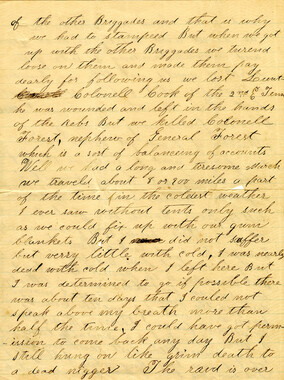 of the other Breggades and that is why
we had to stampeed But when we got
up with the other Breggades we turened
loose on them and made them pay
dearly for following us we lost Lieut
Colonell Cook of the 2nd Tenn
he was wounded and left in the hands
of the Rebs But we killed Colonell
Forest, nephew of General Forest
which is a sort of balanceing of accounts
Well we had a long and tiresome march
we traveled about 8 or 900 miles a part
of the time in the coldest weather
I ever saw without tents only such
as we could fix up with our gum
blankets But I did not suffer
but verry little with cold, I was nearly
dead with cold when I left here But
I was determined to go if possible there
was about ten days that I could not
speak above my breath more than
half the time, I could have got perm-
ission to come back any day But I
still hung on like grim death to
a dead nigger The raid is over